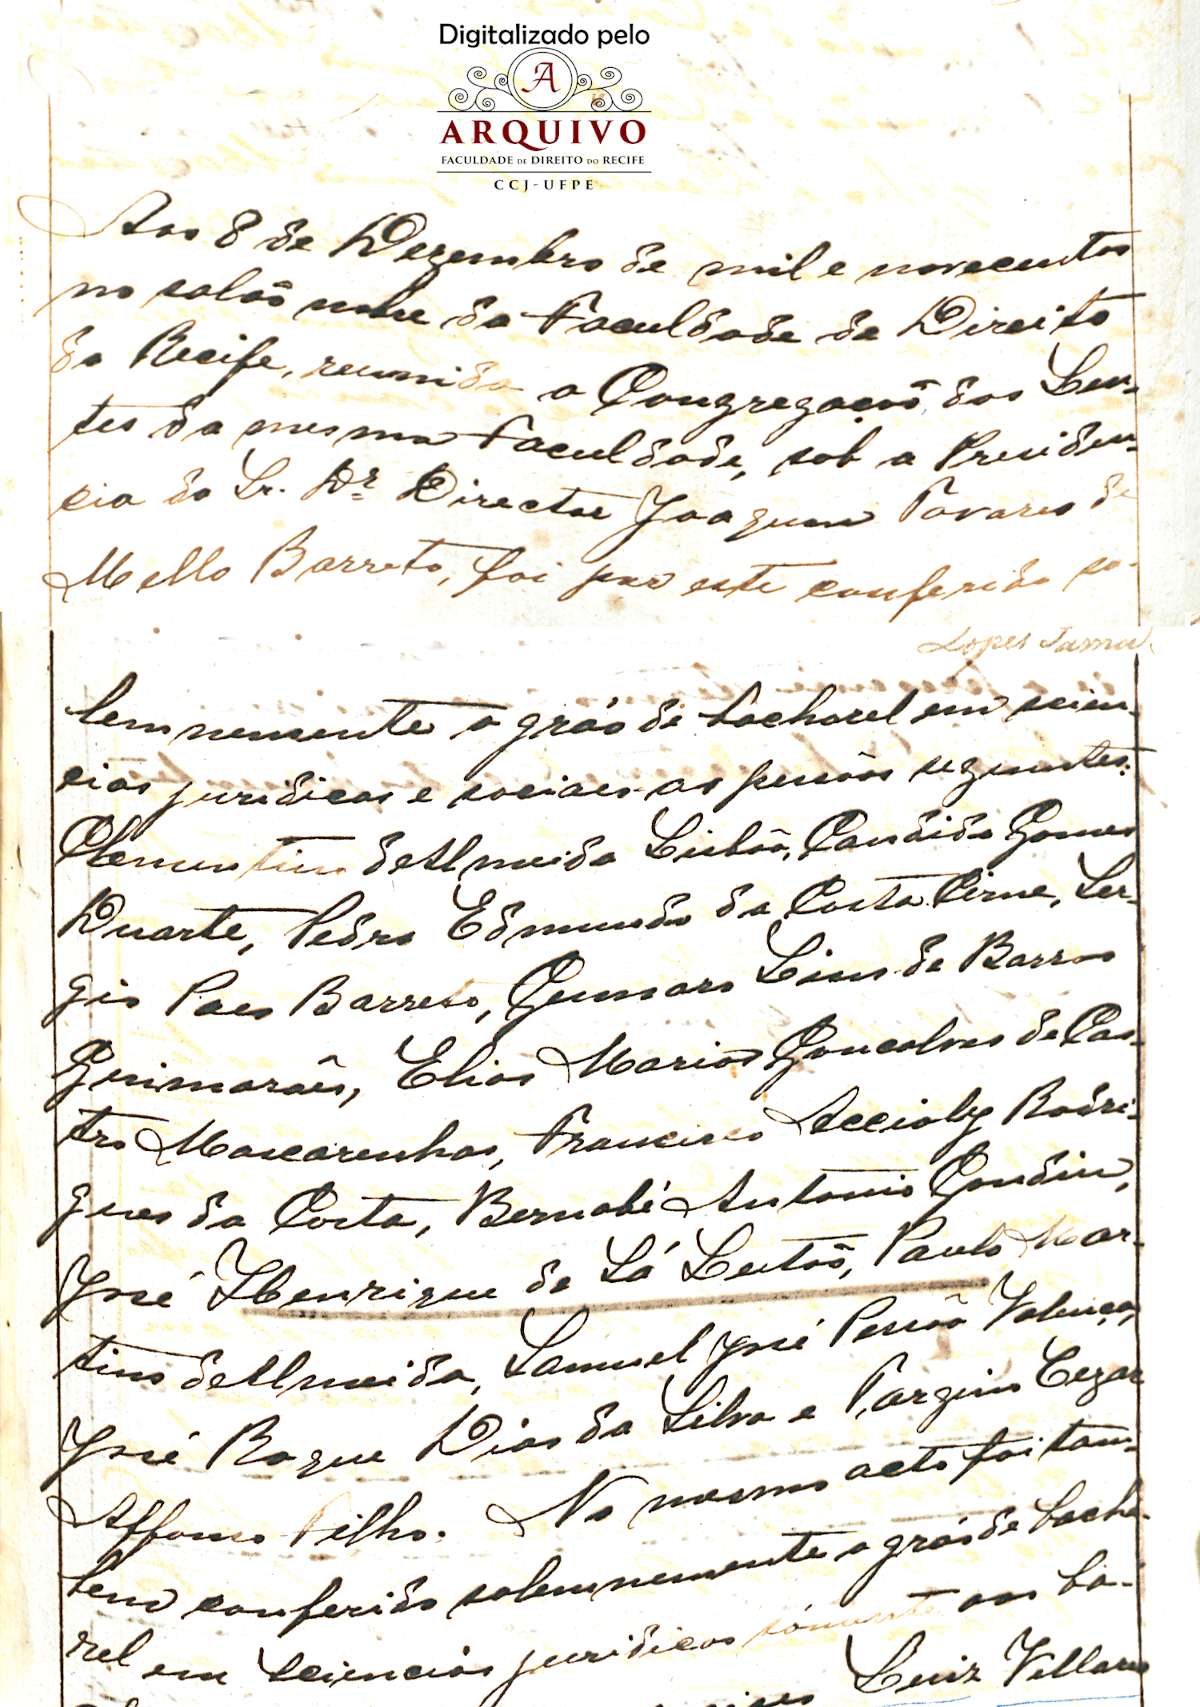 Digitalizado pelo
A
ARQUIVO
FACULDADE DE DIREITO DO RECIFE
CCJ-UFPE
Aos 8 de Dezembro de mil e novecentos
no salão nobre da Faculdade de Direito
do Recife, reunida a Congregação dos Len-
tes da mesma Faculdade, sob a Presiden-
cia do Sr. Dr. Director Joaquim Tavares de
Mello Barreto, foi por este conferido so-
Lopes Gama
lemnemente o gráo de bacharel em scien-
cias juridicas e sociaes as pessôas seguintes:
Clementino de Almeida Lisbôa, Candido Gomes
Duarte, Pedro Edmundo da Costa Cirne, Ser-
gio Paes Barreto, Genuaro Lins de Barros
Guimarães, Elias Marios Gonçalves de Cas-
tro Mascarenhas, Francisco Accioly Rodri-
gues da Costa, Bernabé Antonio Gondim,
José Henrique de Sá Leitão, Paulo Mar-
tins de Almeida, Samuel José Pessôa Valença,
José Roque Dias da Silva e Targino Cezar
Affonso Filho. No mesmo acto foi tam-
bem conferido solemnemente o gráo de bacha-
rel em sciencias juridicas sómente aos ba-
Luiz Villares